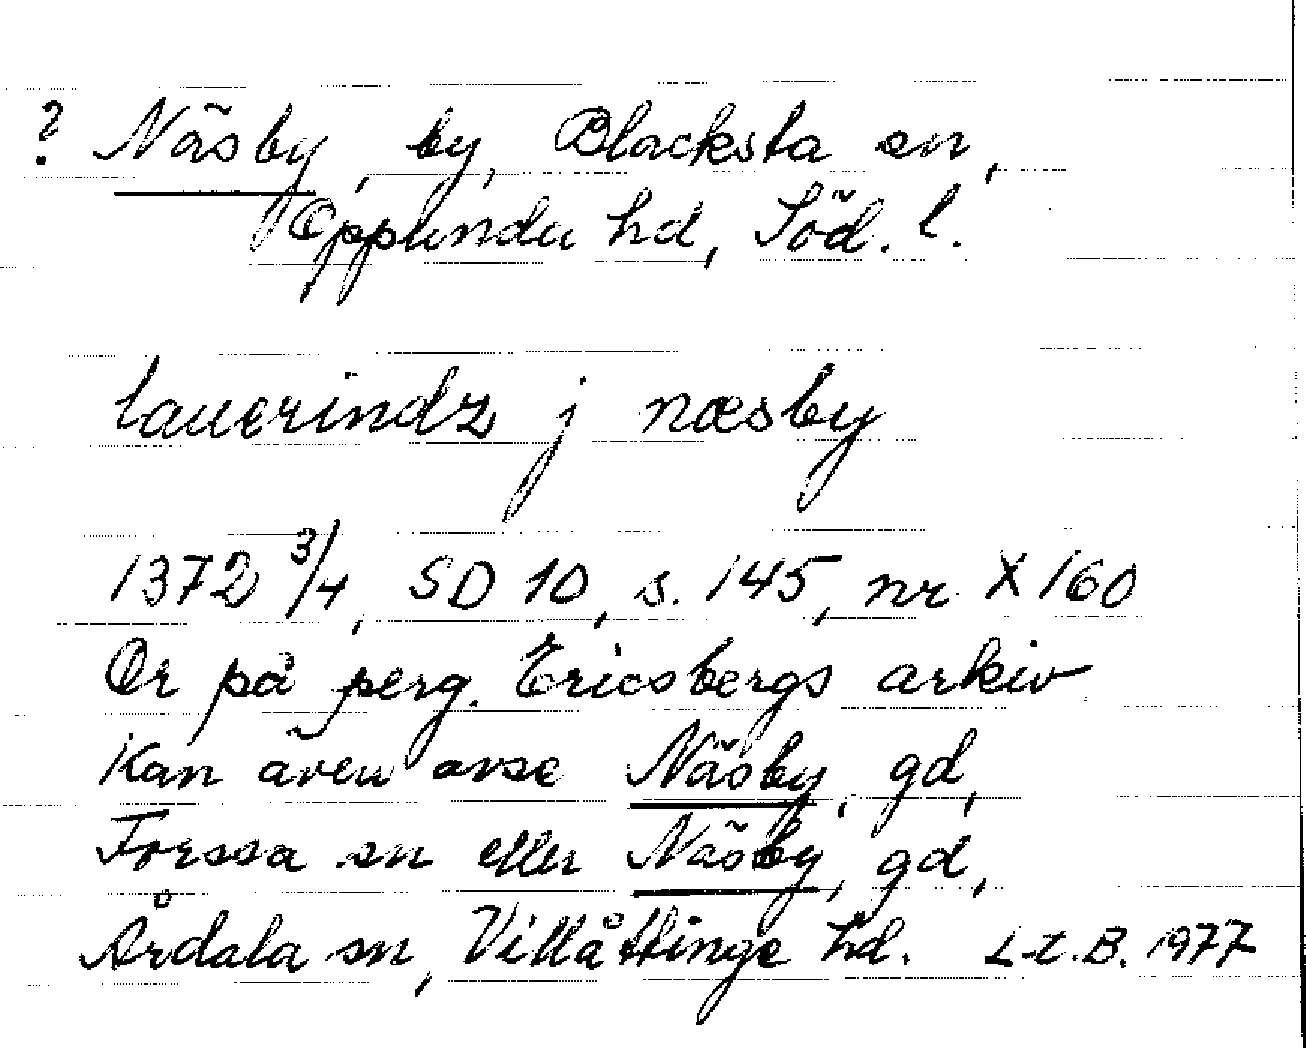 ? Näsby, by, Blacksta sn,
Oppunda hd, Söd. l.
lauerindz j næsby
1372 3/4, SD 10, s. 145, nr X 160
Or på perg. Ericsbergs arkiv
Kan även avse Näsby, gd,
Forssa sn eller Näsby, gd,
Årdala sn, Villåttinge hd. L-t.B. 1977